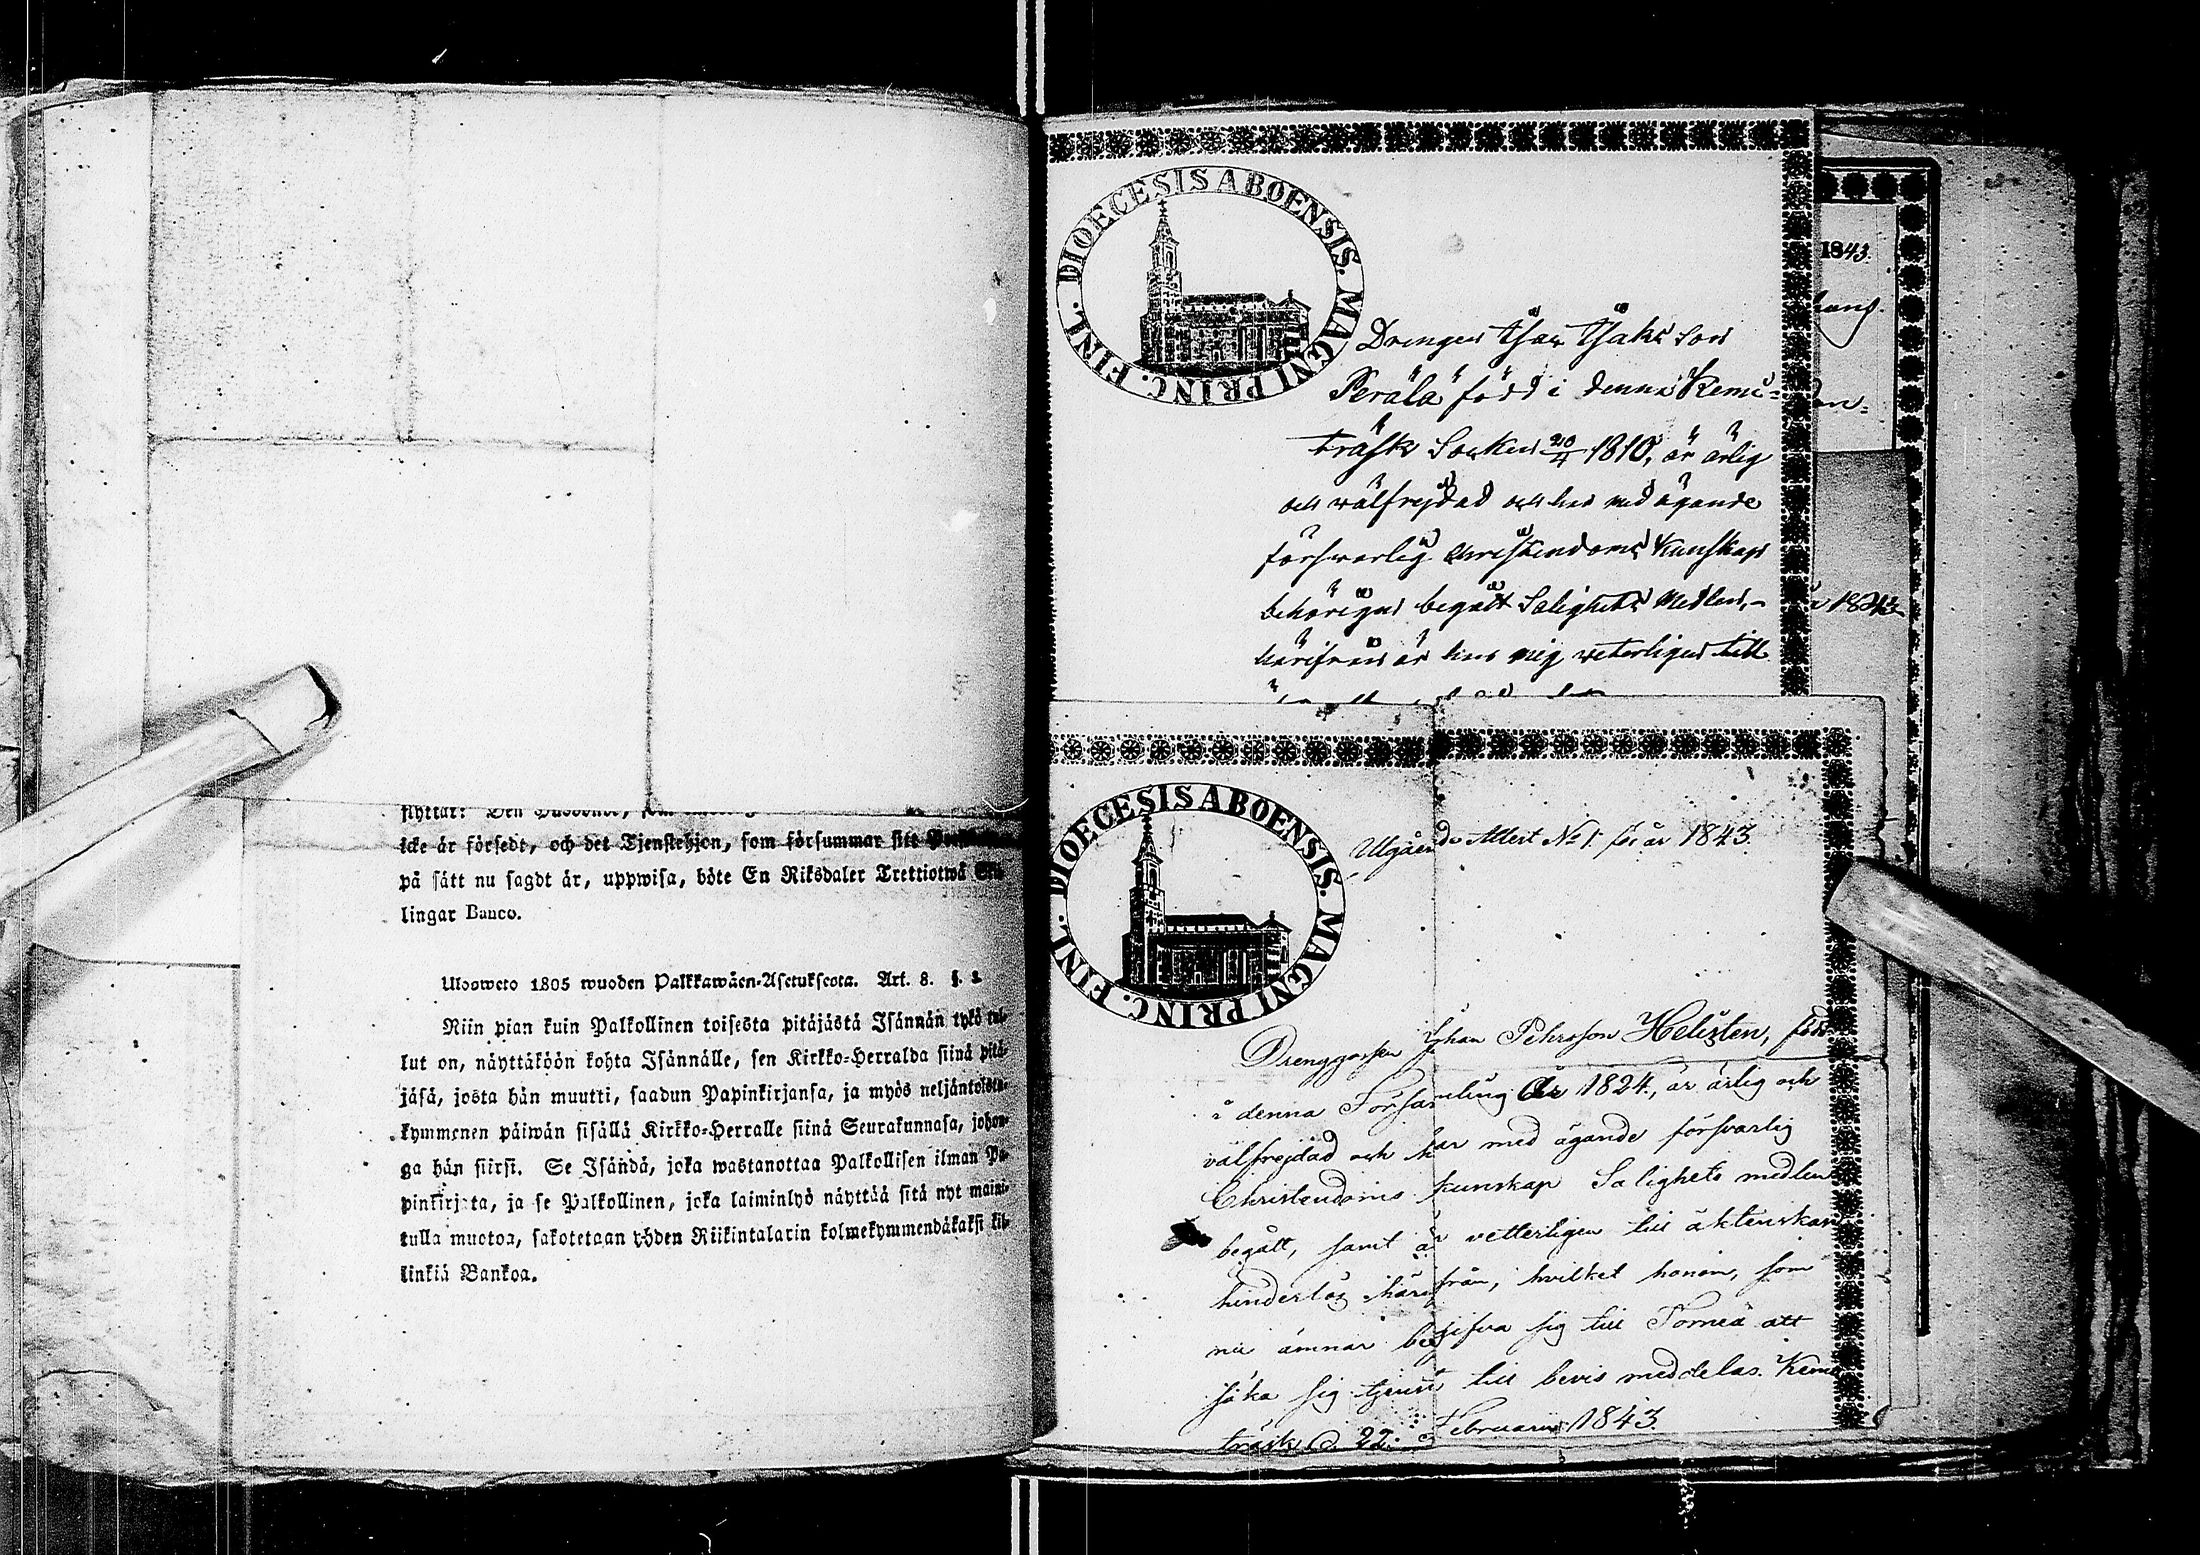 flyttar: Den
icke är försedt, och det Tjenstehjon, som försummar sitt
på sätt nu sagdt är, uppwisa, böte En Riksdaler Trettiotwå
lingar Banco.
Uloosweto 1805 wuoden Palkkawäen-Asetuksesta. Art. 8. §. 2.
Niin pian kuin Palkollinen toisesta pitäjästä Isännän tykö tul-
lut on, näyttäköön kohta Isännälle, sen Kirkko-Herralda siinä pitä-
jäsä, josta hän muutti, saadun Papinkirjansa, ja myös neljäntoista-
kymmenen päiwän sisällä Kirkko-Herralle siinä Seurakunnasa, johon-
ga hän siirsi. Se Isändä, joka wastanottaa Palkollisen ilman Pa-
pinkirjata, ja se Palkollinen, joka laiminlyö näyttää sitä nyt maini-
tulla muotoa, sakotetaan yhden Riikintalarin kolmekymmendäkaksi kil-
linkiä Bankoa.
DIOECESIS ABOENSIS. MAGNI PRINC. FINL.
Drengen Isak Isaks Son
Perälä född i denna Kemi-
träsk Socken 20/4 1810, är ärlig
och wälfrejdad och har med ägande
förswarlig Christendoms Kunskap
behörigen begått Salighets Medlen,
härifrån är han mig weterligen till
1843.
1843
DIOECESIS ABOENSIS. MAGNI PRINC. FINL.
Utgående Attest No 1. för år 1843.
Drenggossen Johan Pehrsson Helisten, född
i denna Församling År 1824, är ärlig och
välfrejdad och har med ägande försvarlig
Christendoms kunskap Salighets medlen
begått, samt är vetterligen till äktenskap
hinderlös härifrån, hvilket honom, som
nu ämnar begifva sig till Torneå att
söka sig tjenst till bevis meddelas. Kemi
träsk d. 22 Februarii 1843.